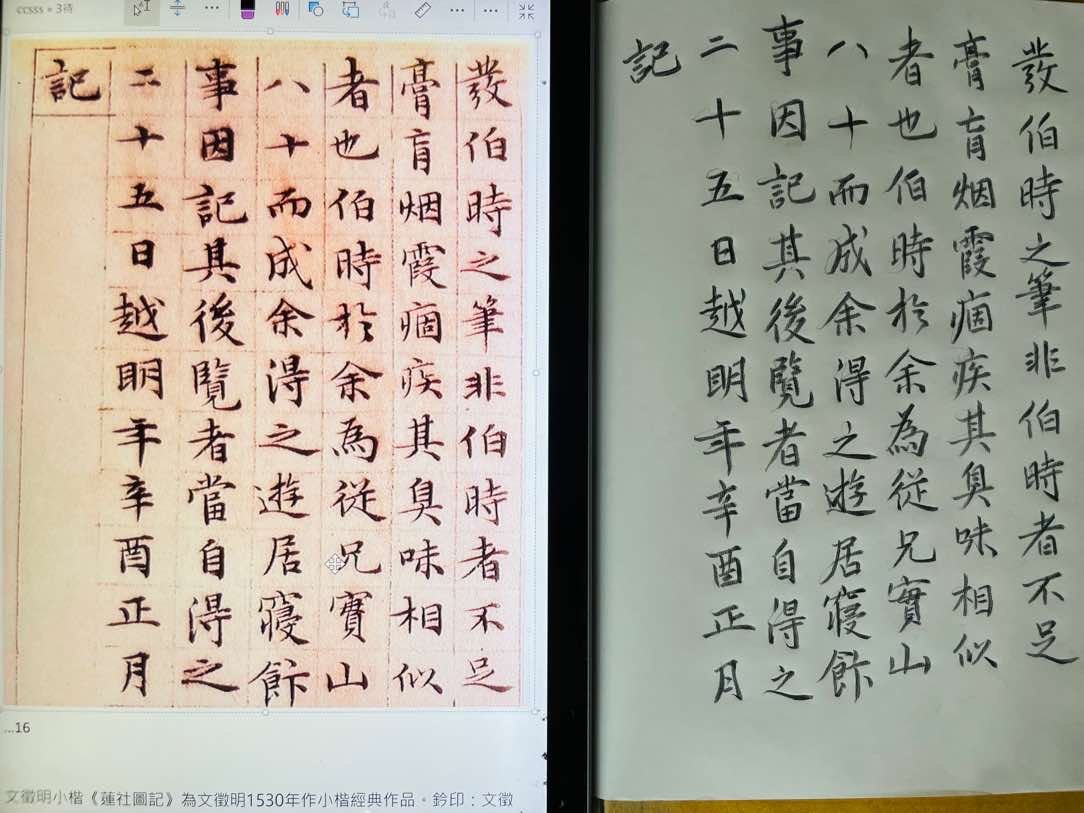 ccsss • 3待
發伯時之筆非伯時者不足
膏肓烟霞痼疾其臭味相似
者也伯時於余為從兄實山
八十而成余得之遊居寢飾
事因記其後覽者當自得之
二十五日越明年辛酉正月
記
...16
文徵明小楷《蓮社圖記》為文徵明1530年作小楷經典作品。鈐印：文徵
發伯時之筆非伯時者不足
膏肓烟霞痼疾其臭味相似
者也伯時於余為從兄實山
八十而成余得之遊居寢飾
事因記其後覽者當自得之
二十五日越明年辛酉正月
記